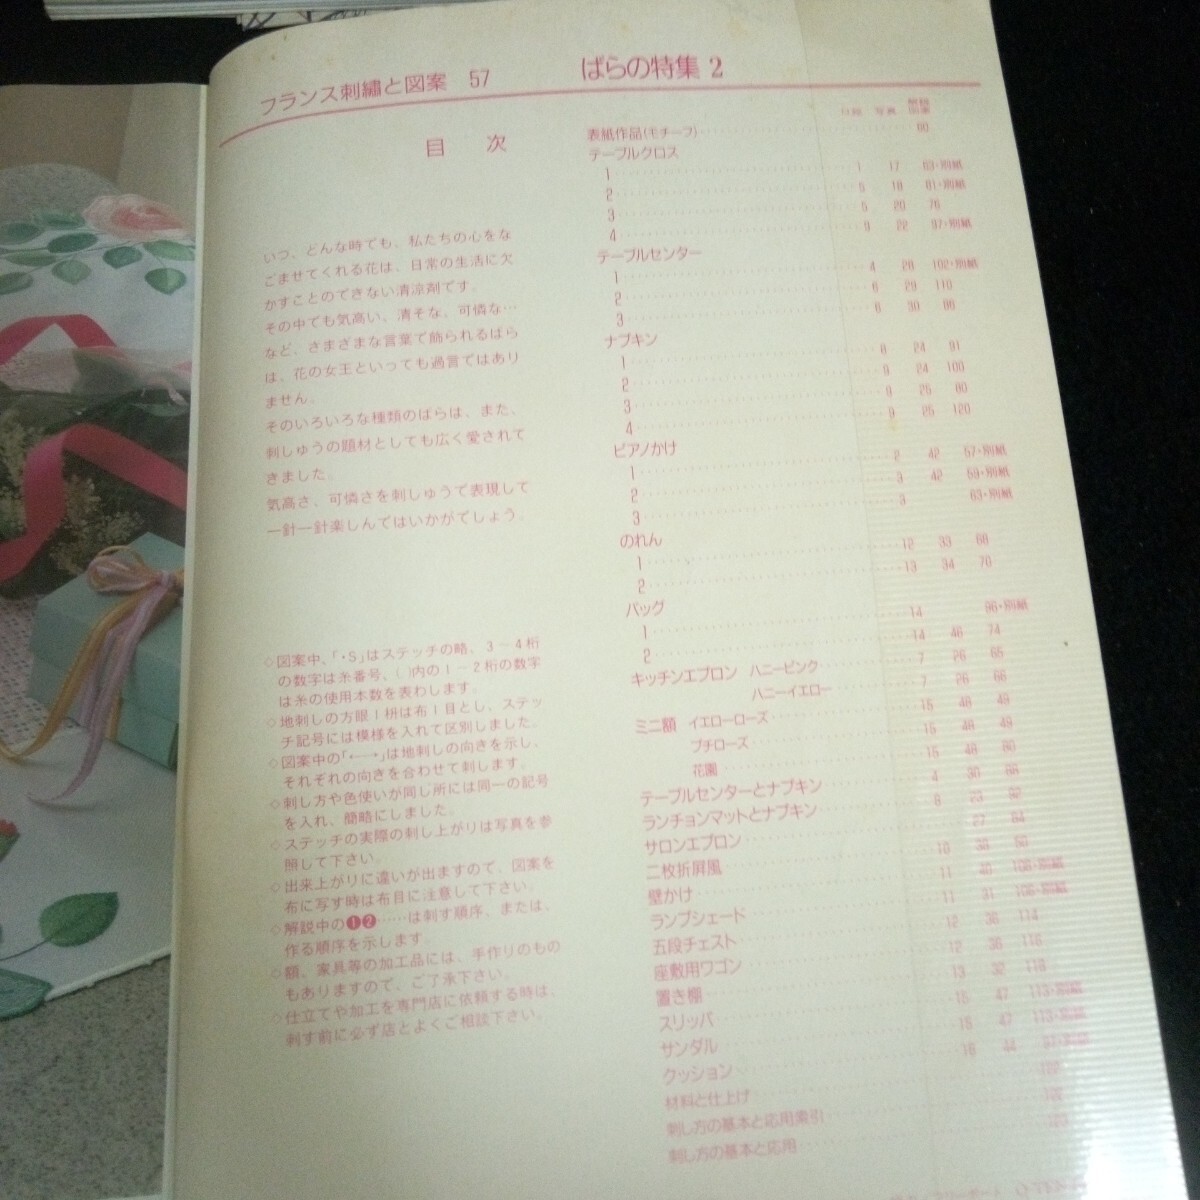 フランス刺繡と図案 57 ばらの特集 2
目 次
いつ、どんな時でも、私たちの心をな
ごませてくれる花は、日常の生活に欠
かすことのできない清涼剤です。
その中でも気高い、清そな、可憐な…
など、さまざまな言葉で飾られるばら
は、花の女王といっても過言ではあり
ません。
そのいろいろな種類のばらは、また、
刺しゅうの題材としても広く愛されて
きました。
気高さ、可憐さを刺しゅうで表現して
一針一針楽しんではいかがでしょう。
◇図案中、「・S」はステッチの略、3－4桁
の数字は糸番号、( )内の1－2桁の数字
は糸の使用本数を表わします。
◇地刺しの方眼1枡は布1目とし、ステッ
チ記号には模様を入れて区別しました。
◇図案中の「・―・」は地刺しの向きを示し、
それぞれの向きを合わせて刺します。
◇刺し方や色使いが同じ所には同一の記号
を入れ、簡略にしました。
◇ステッチの実際の刺し上がりは写真を参
照して下さい。
◇出来上がりに違いが出ますので、図案を
布に写す時は布目に注意して下さい。
◇解説中の❶❷……は刺す順序、または、
作る順序を示します。
◇額、家具等の加工品には、手作りのもの
もありますので、ご了承下さい。
◇仕立てや加工を専門店に依頼する時は、
刺す前に必ず店とよくご相談下さい。
写真
表紙作品(モチーフ) 60
テーブルクロス
1 1 17 83・別紙
2 5 18 81・別紙
3 5 20 76
4 9 22 97・別紙
テーブルセンター
1 4 28 102・別紙
2 6 29 110
3 6 30 86
ナプキン
1 8 24 91
2 9 24 100
3 9 25 80
4 9 25 120
ピアノかけ
1 2 42 57・別紙
2 3 42 59・別紙
3 3 63・別紙
のれん
1 12 33 68
2 13 34 70
バッグ
1 14 96・別紙
2 14 46 74
キッチンエプロン ハニーピンク 7 26 65
ハニーイエロー 7 26 66
ミニ額 イエローローズ 15 48 49
プチローズ 15 48 49
花園 15 48
テーブルセンターとナプキン 4 30
ランチョンマットとナプキン 23
サロンエプロン 27
二枚折屏風 10
壁かけ 11 40
ランプシェード 11 31
五段チェスト 12 36 114
座敷用ワゴン 12 36
置き棚 13 32
スリッパ 15 47 113・別紙
サンダル 15 47 113・別紙
クッション 16 44
材料と仕上げ
刺し方の基本と応用索引
刺し方の基本と応用